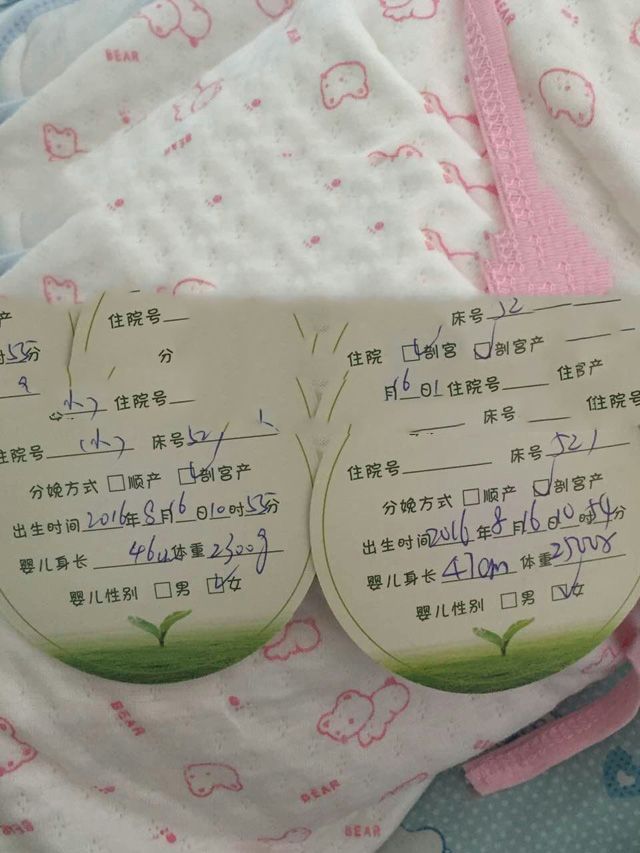 BEAR
BEAR
BEAR
产
住院号
时55分
分
住院号
床号 52
住院 剖宫 剖宫产
月16日1 住院号 住
产
床号 住院号
住院号 (小) 床号 521
分娩方式 □顺产 ☑剖宫产
出生时间 2016年8月16日10时55分
婴儿身长 46cm 体重 2300g
婴儿性别 □男 ☑女
住院号 床号 521
分娩方式 □顺产 ☑剖宫产
出生时间 2016年8月16日10时54分
婴儿身长 47cm 体重 2500g
婴儿性别 □男 ☑女
BEAR
BEAR
BEAR
BEAR